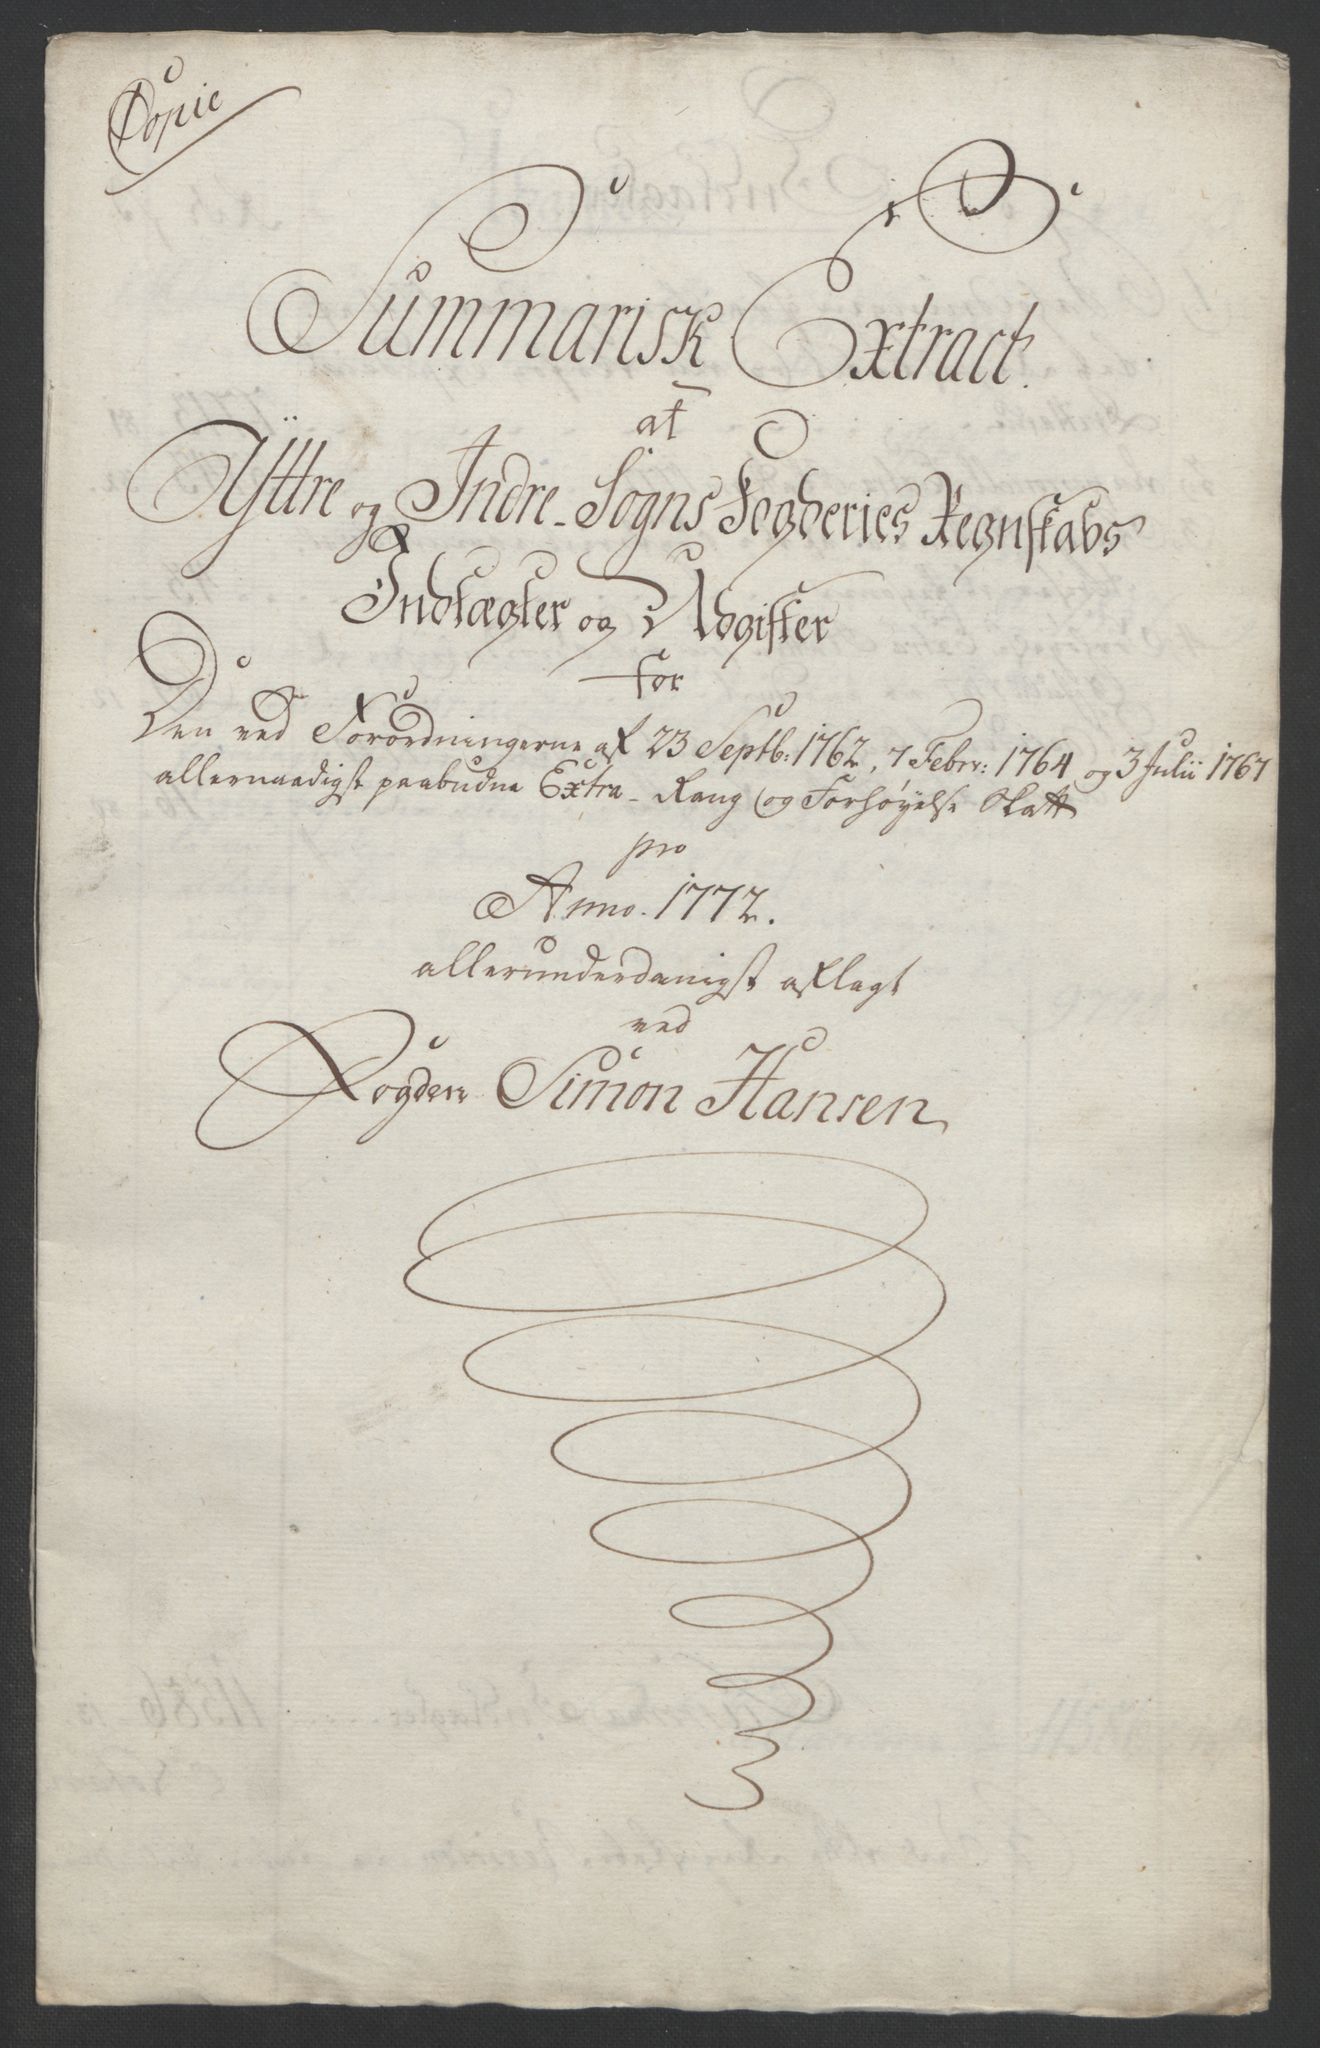 Copie
Summarisk Extract.
af
Ÿttre og Indre-Sogns Fogderies Regnskabs
Indtægter og Udgifter
for
Den ved Forordningerne af 23 Septb: 1762, 7 Febr: 1764 og 3 Julii 1767
allernaadigst paabudne Extra- Rang og Forhøyelse Skatt
pro
Anno. 1772.
allerunderdanigst aflagt
ved
Fogden Simon Hansen